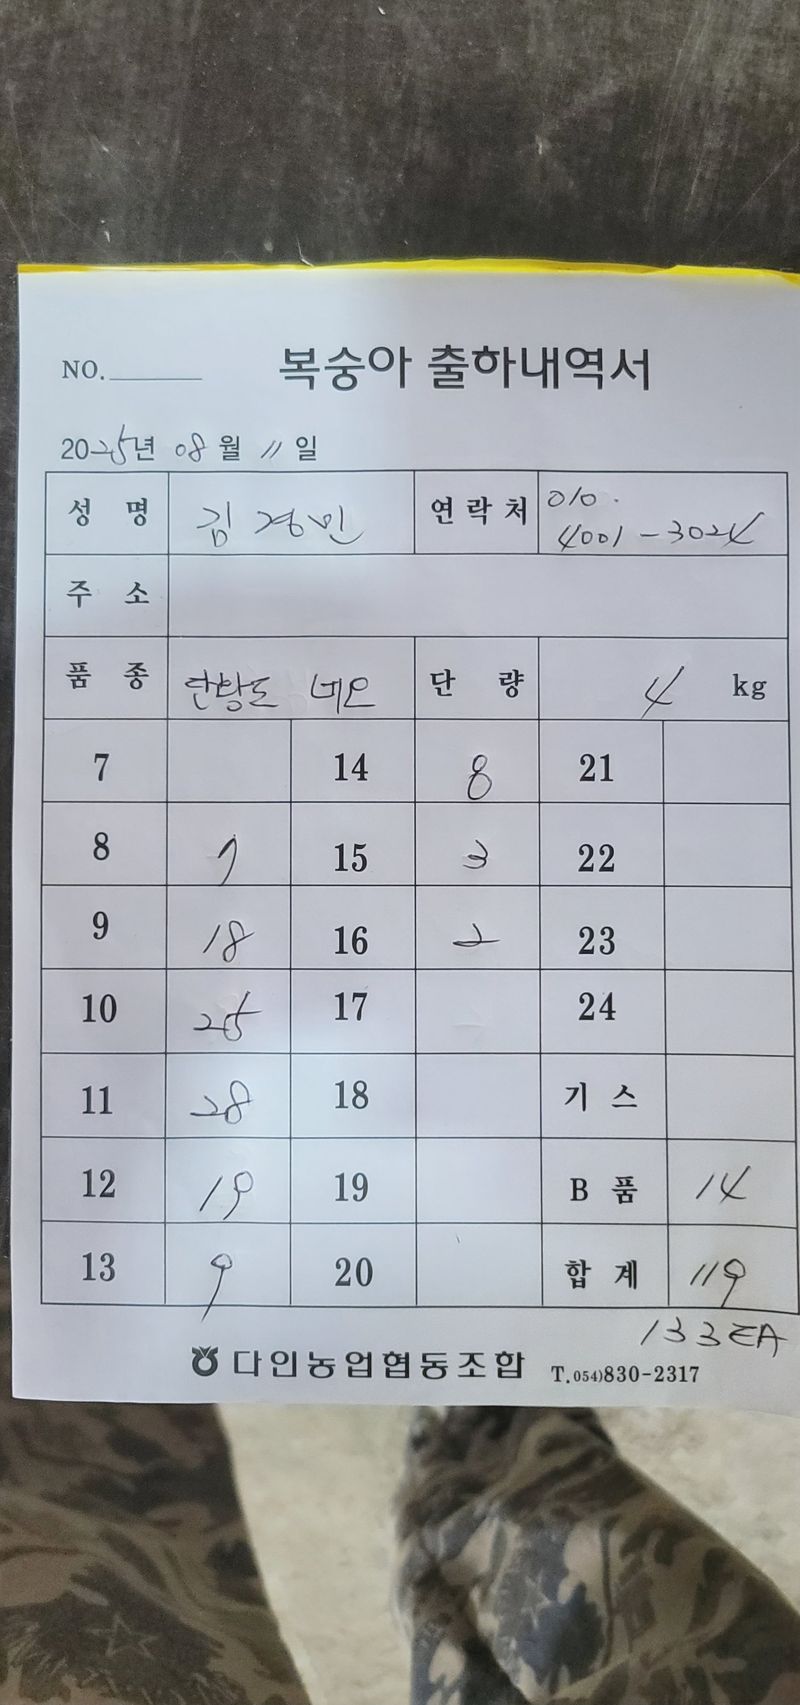 NO.
복숭아 출하내역서
2025년 08월 11일
성 명 김경민 연락처 010. 4001-3024
주 소
품 종 단황도 네오 단 량 4 kg
7 14 8 21
8 7 15 3 22
9 18 16 2 23
10 25 17 24
11 28 18 기 스
12 19 19 B 품 14
13 9 20 합 계 119
133EA
다인농업협동조합 T.054)830-2317